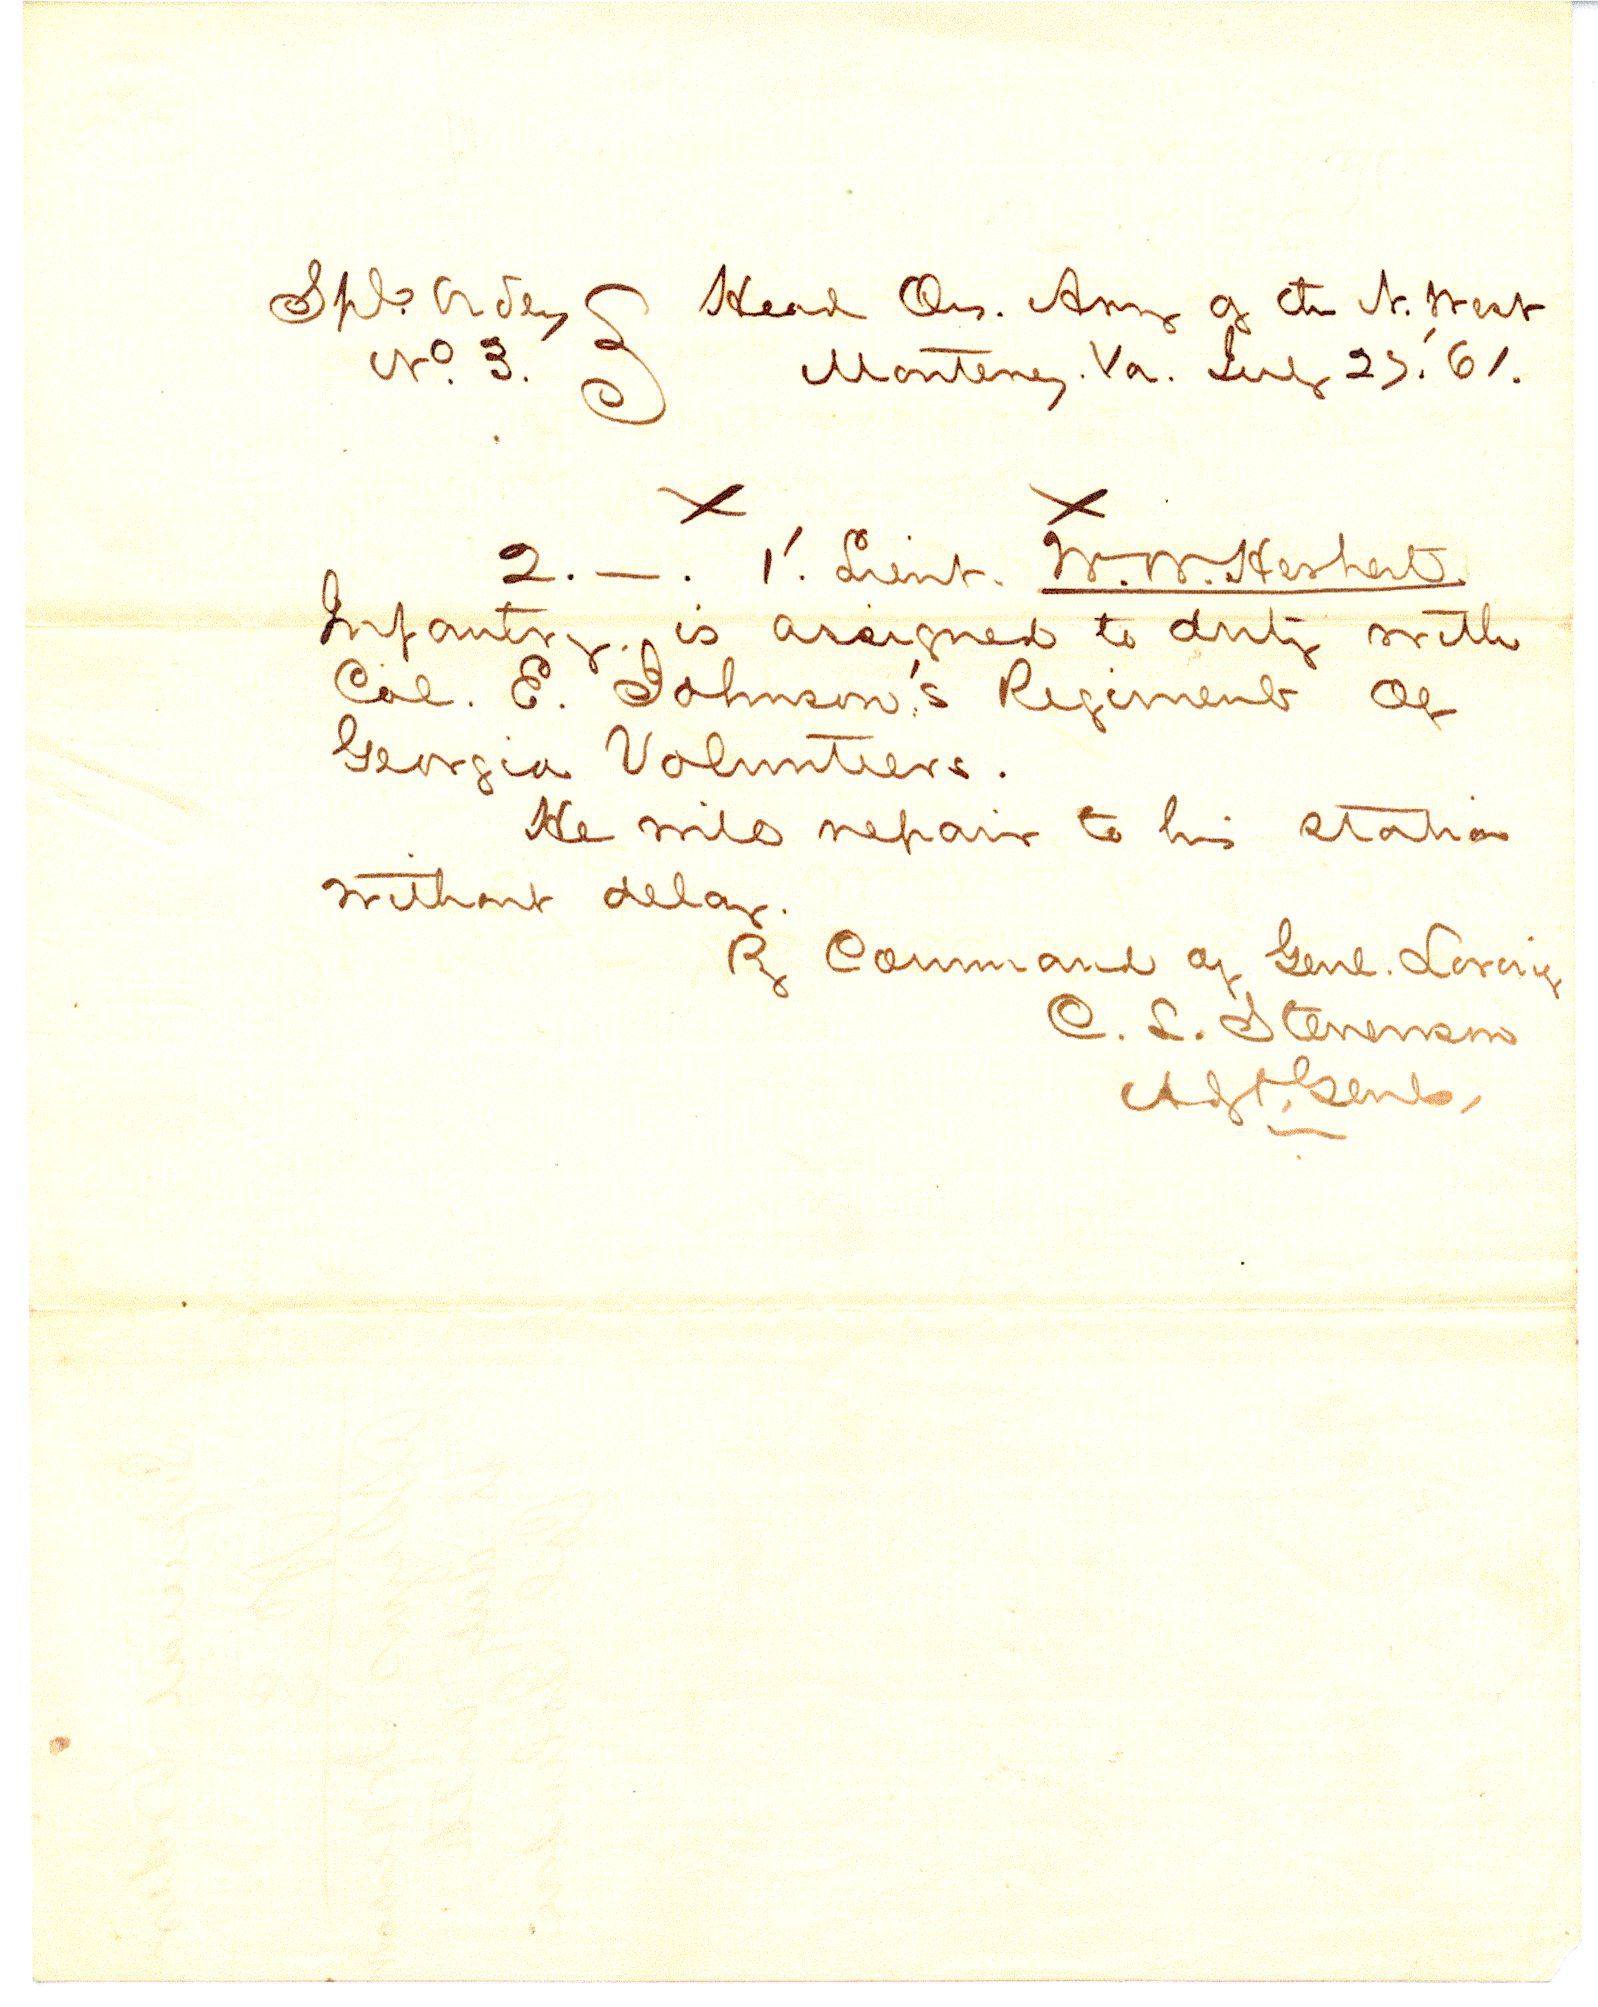 Spl. Orders } Head Qrs. Army of the N. West
No. 3. Monterey. Va. July 25.' 61.
X X
2. —. 1'. Lieut. W. W. Herbert
Infantry. is assigned to duty with
Col. E. Johnson's Regiment of
Georgia Volunteers.
He will repair to his station
without delay.
By Command of Genl. Loring
C. L. Stevenson
Adjt. Genl.